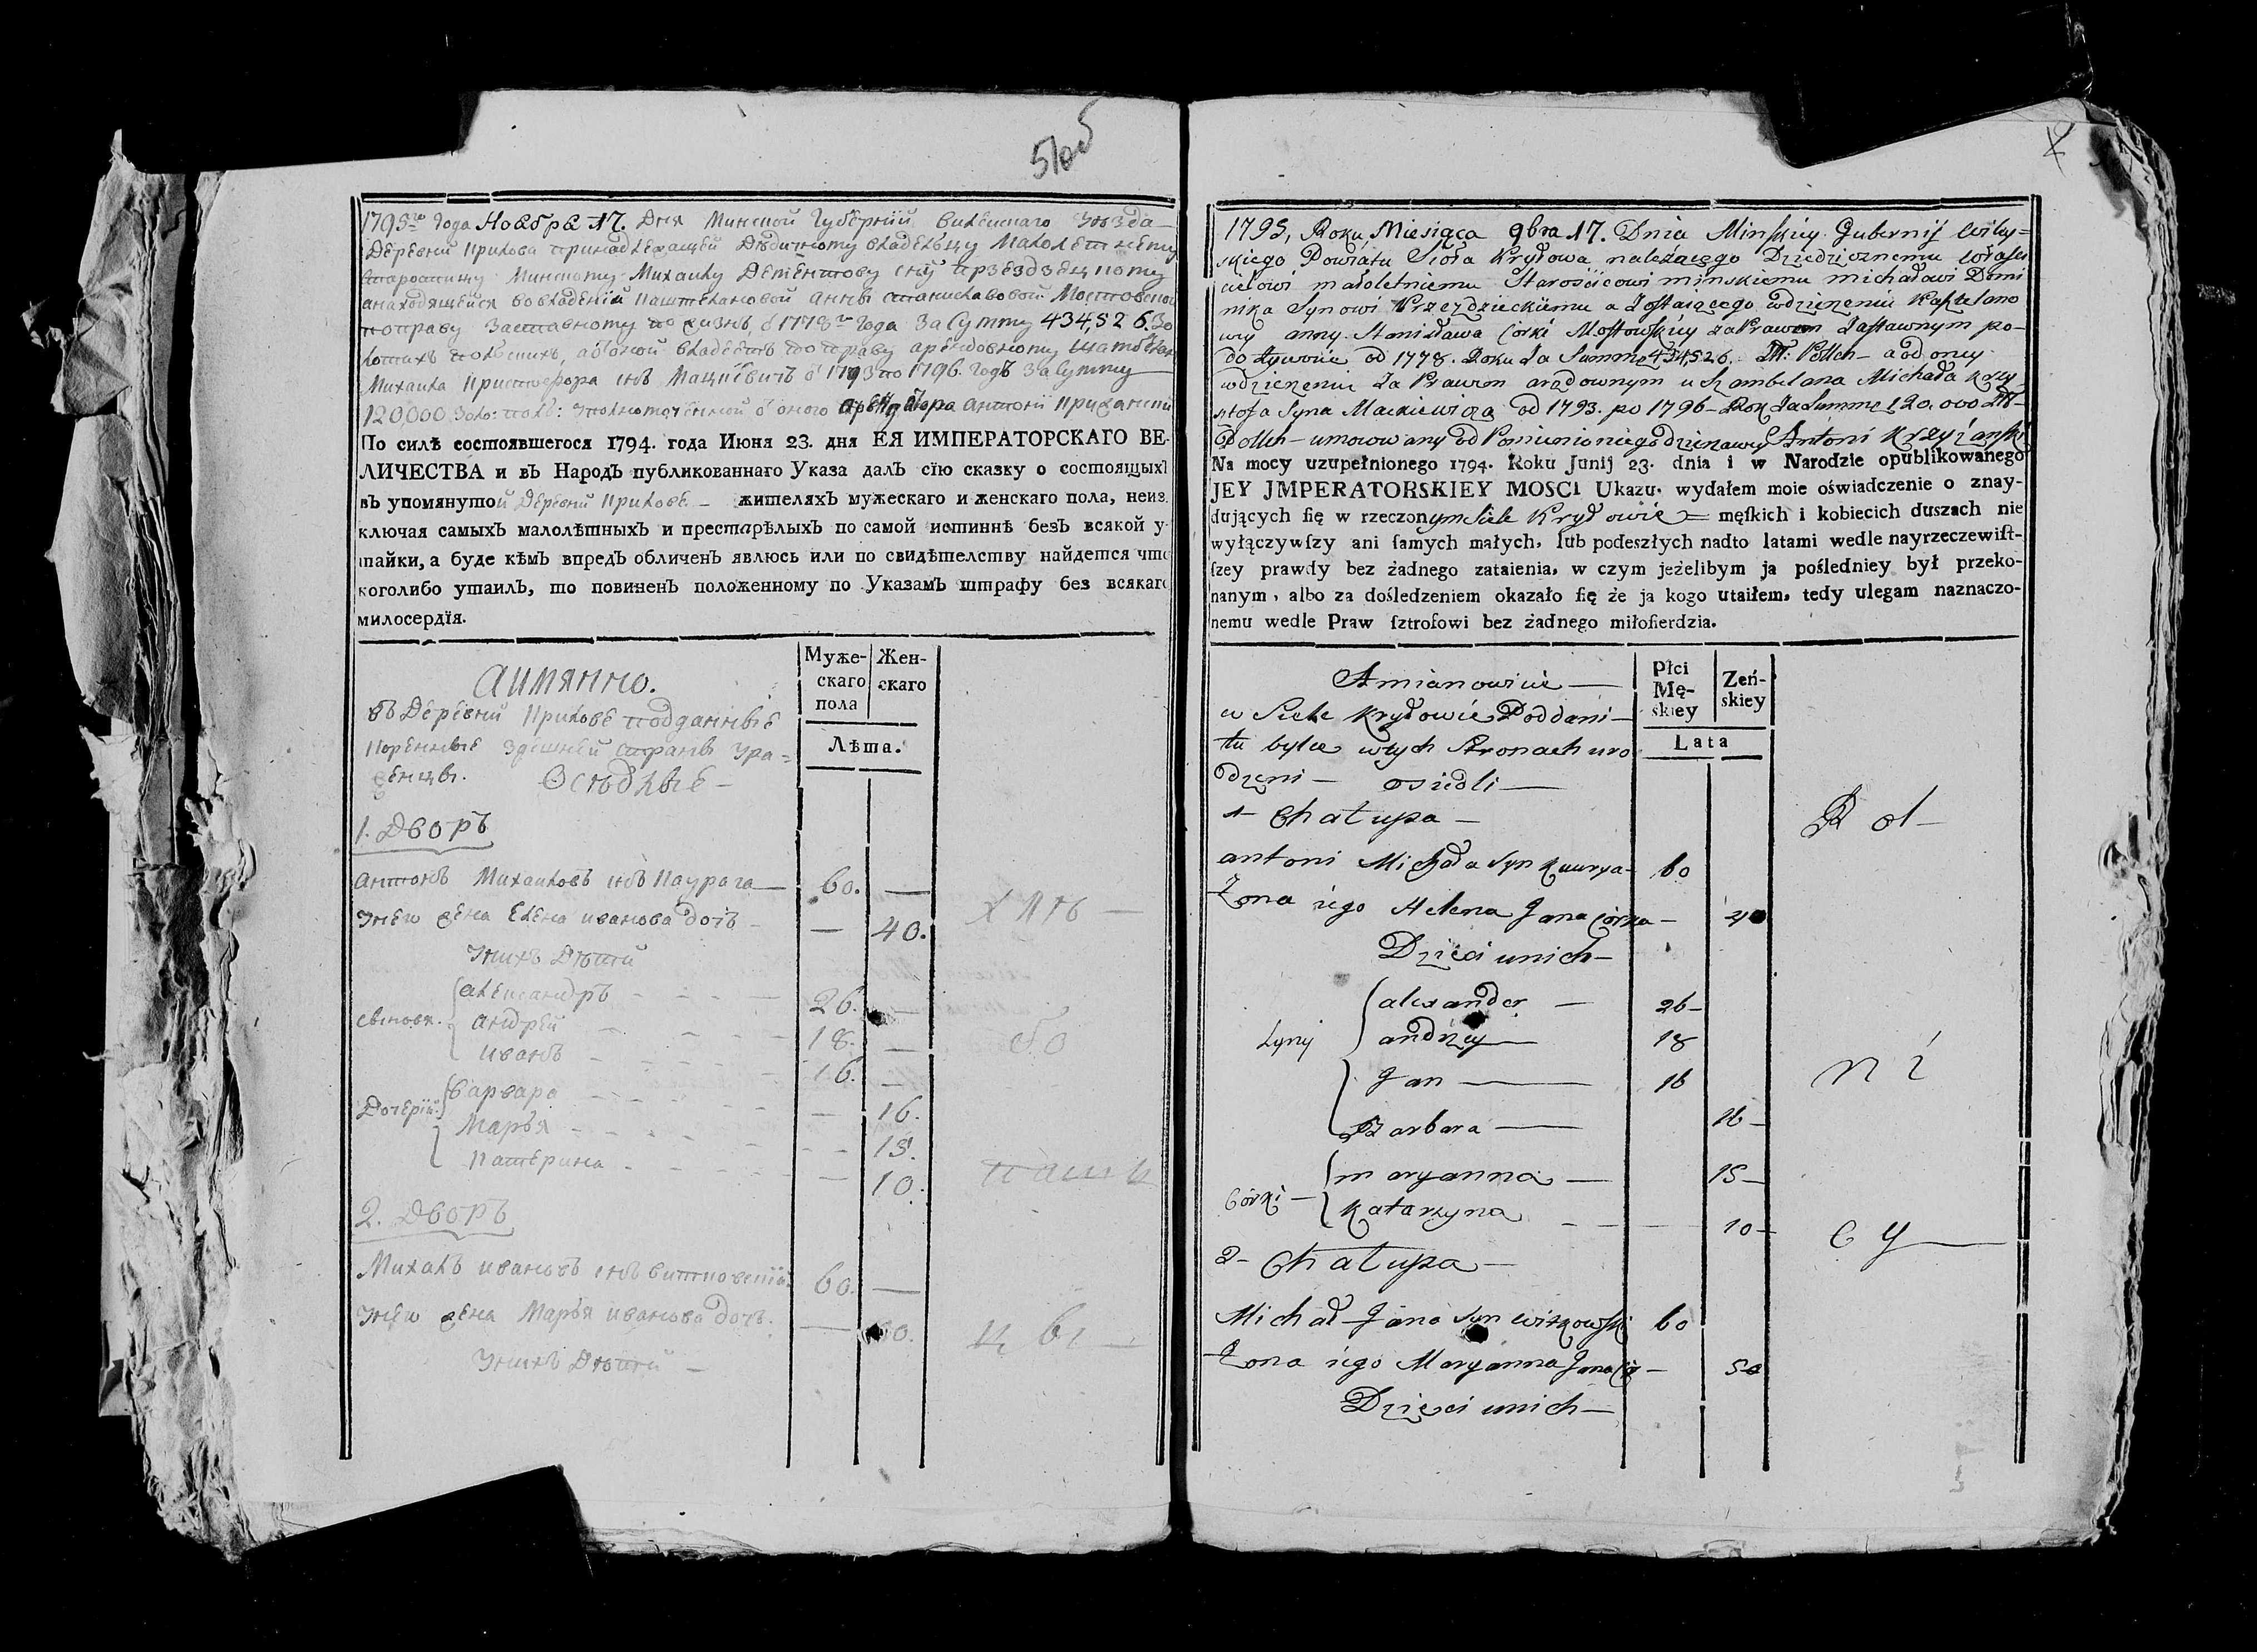 51об
1795го Года Ноября 17. Дня Минской Губернїи Вилейскаго Уѣзда
Деревни Крилова принадлежащей Дѣдичному владельцу Малолетнему
Старостичу Минскому Михаилу Деменикову сну Прзездзецкому
анаходящейся вовладенїи Каштелановой Анны Станиславовой Мостовской
поправу Заставному по жизнь, с 1778го Года За Сумму 434,526. Зо
лотихъ польскихъ, аоной владеетъ по праву арендовному
Михаила Криштофора снъ Мацкѣвичъ с 1793 по 1796. Годъ За Сумму
120,000 Золо: поль: уполномоченной с оного Арендатора Антонїи
По силѣ состоявшегося 1794. года Июня 23. дня ЕЯ ИМПЕРАТОРСКАГО ВЕ-
ЛИЧЕСТВА и въ Народъ публикованнаго Указа далъ сїю сказку о состоящыхъ
въ упомянутой Деревни Крилове – жителяхъ мужескаго и женскаго пола, неиз.
ключая самыхъ малолѣтныхъ и престарѣлыхъ по самой истиннѣ безъ всякой у-
тайки, а буде кѣмъ впредъ обличенъ явлюсь или по свидѣтелству найдется что
коголибо утаилъ, то повиненъ положенному по Указамъ штрафу без всякаго
милосердїя.
Муже-скаго пола Жен-скаго
Лѣта.
Аимянно.
въ Деревни Крилове подданные
Коренные Здешней страны Уро=
женцы. Оседлые –
1. Дворъ
Антонъ Михаиловъ снъ Каурога — 60. —
Унего жена Елена иванова дочь – — 40.
Унихъ Дѣтей
сыновя. Александръ 26. —
Андрей 18. —
Иванъ 16. —
Дочерїи: Варвара — 16.
Марья 15.
Катерина — 10.
2. Дворъ
Михалъ ивановъ снъ Витковскїй 60. —
Унего жена Марья иванова дочь. —
Унихъ Дѣтей —
1795, Roku Miesiąca 9bra 17. Dnia Minskiey Gubernij Wiley=
skiego Powiatu Sioła Kryłowa należącego Dziedzicznemu właści
cielowi małoletniemu Starościcowi minskiemu michałowi Domi
nika Synowi Przezdzieckiemu a Zostaiącego wdzierzeniu Kasztelano
wey anny Stanisława Corki Mostowskiey zaPrawem Zastawnym po-
do żywocie od 1778. Roku Za Summę 434,526. Zł: Polch – aodoney
wdzierzeniu Za Prawem arędownym u Szambelana Michała Krzy-
sztofa Syna Mackiewicza od 1793. po 1796 – Rok Za Summę 120.000 Zł –
Polch – umocowany od Pomienionego dzierzawcy Antoni Krzyżanski
Na mocy uzupełnionego 1794. Roku Junij 23. dnia i w Narodzie opublikowanego
JEY JMPERATORSKIEY MOSCI Ukazu. wydałem moie oświadczenie o znay-
dujących ſię w rzeczonym Siele Kryłowie = męſkich i kobiecich duszach nie
wyłączywſzy ani ſamych małych, lub podeszłych nadto latami wedle nayrzeczewiſt-
ſzey prawdy bez żadnego zataienia, w czym jeżelibym ja poſledniey był przeko-
nanym, albo za dośledzeniem okazało ſię że ja kogo utaiłem, tedy ulegam naznaczo-
nemu wedle Praw ſztrofowi bez żadnego miłoſierdzia.
Płci Mę-skiey Zeń-skiey
Lata
Amianowicie —
w Siele Kryłowie Poddani –
tu bylce wtych Stronach uro
dzeni – osiedli —
1 – Chałupa –
antoni Michała Syn Kauryga – 60
Żona iego Helena Jana Corka – 40
Dzieci unich –
Syny alexander — 26 –
andrzey — 18
Jan — 16
Barbara — 16 –
Corki – maryanna — 15 –
Katarzyna — 10 –
2 – Chałupa –
Michał Jana Syn Witkowski 60
Żona iego Maryanna Jana Cor – 50
Dzieci unich –